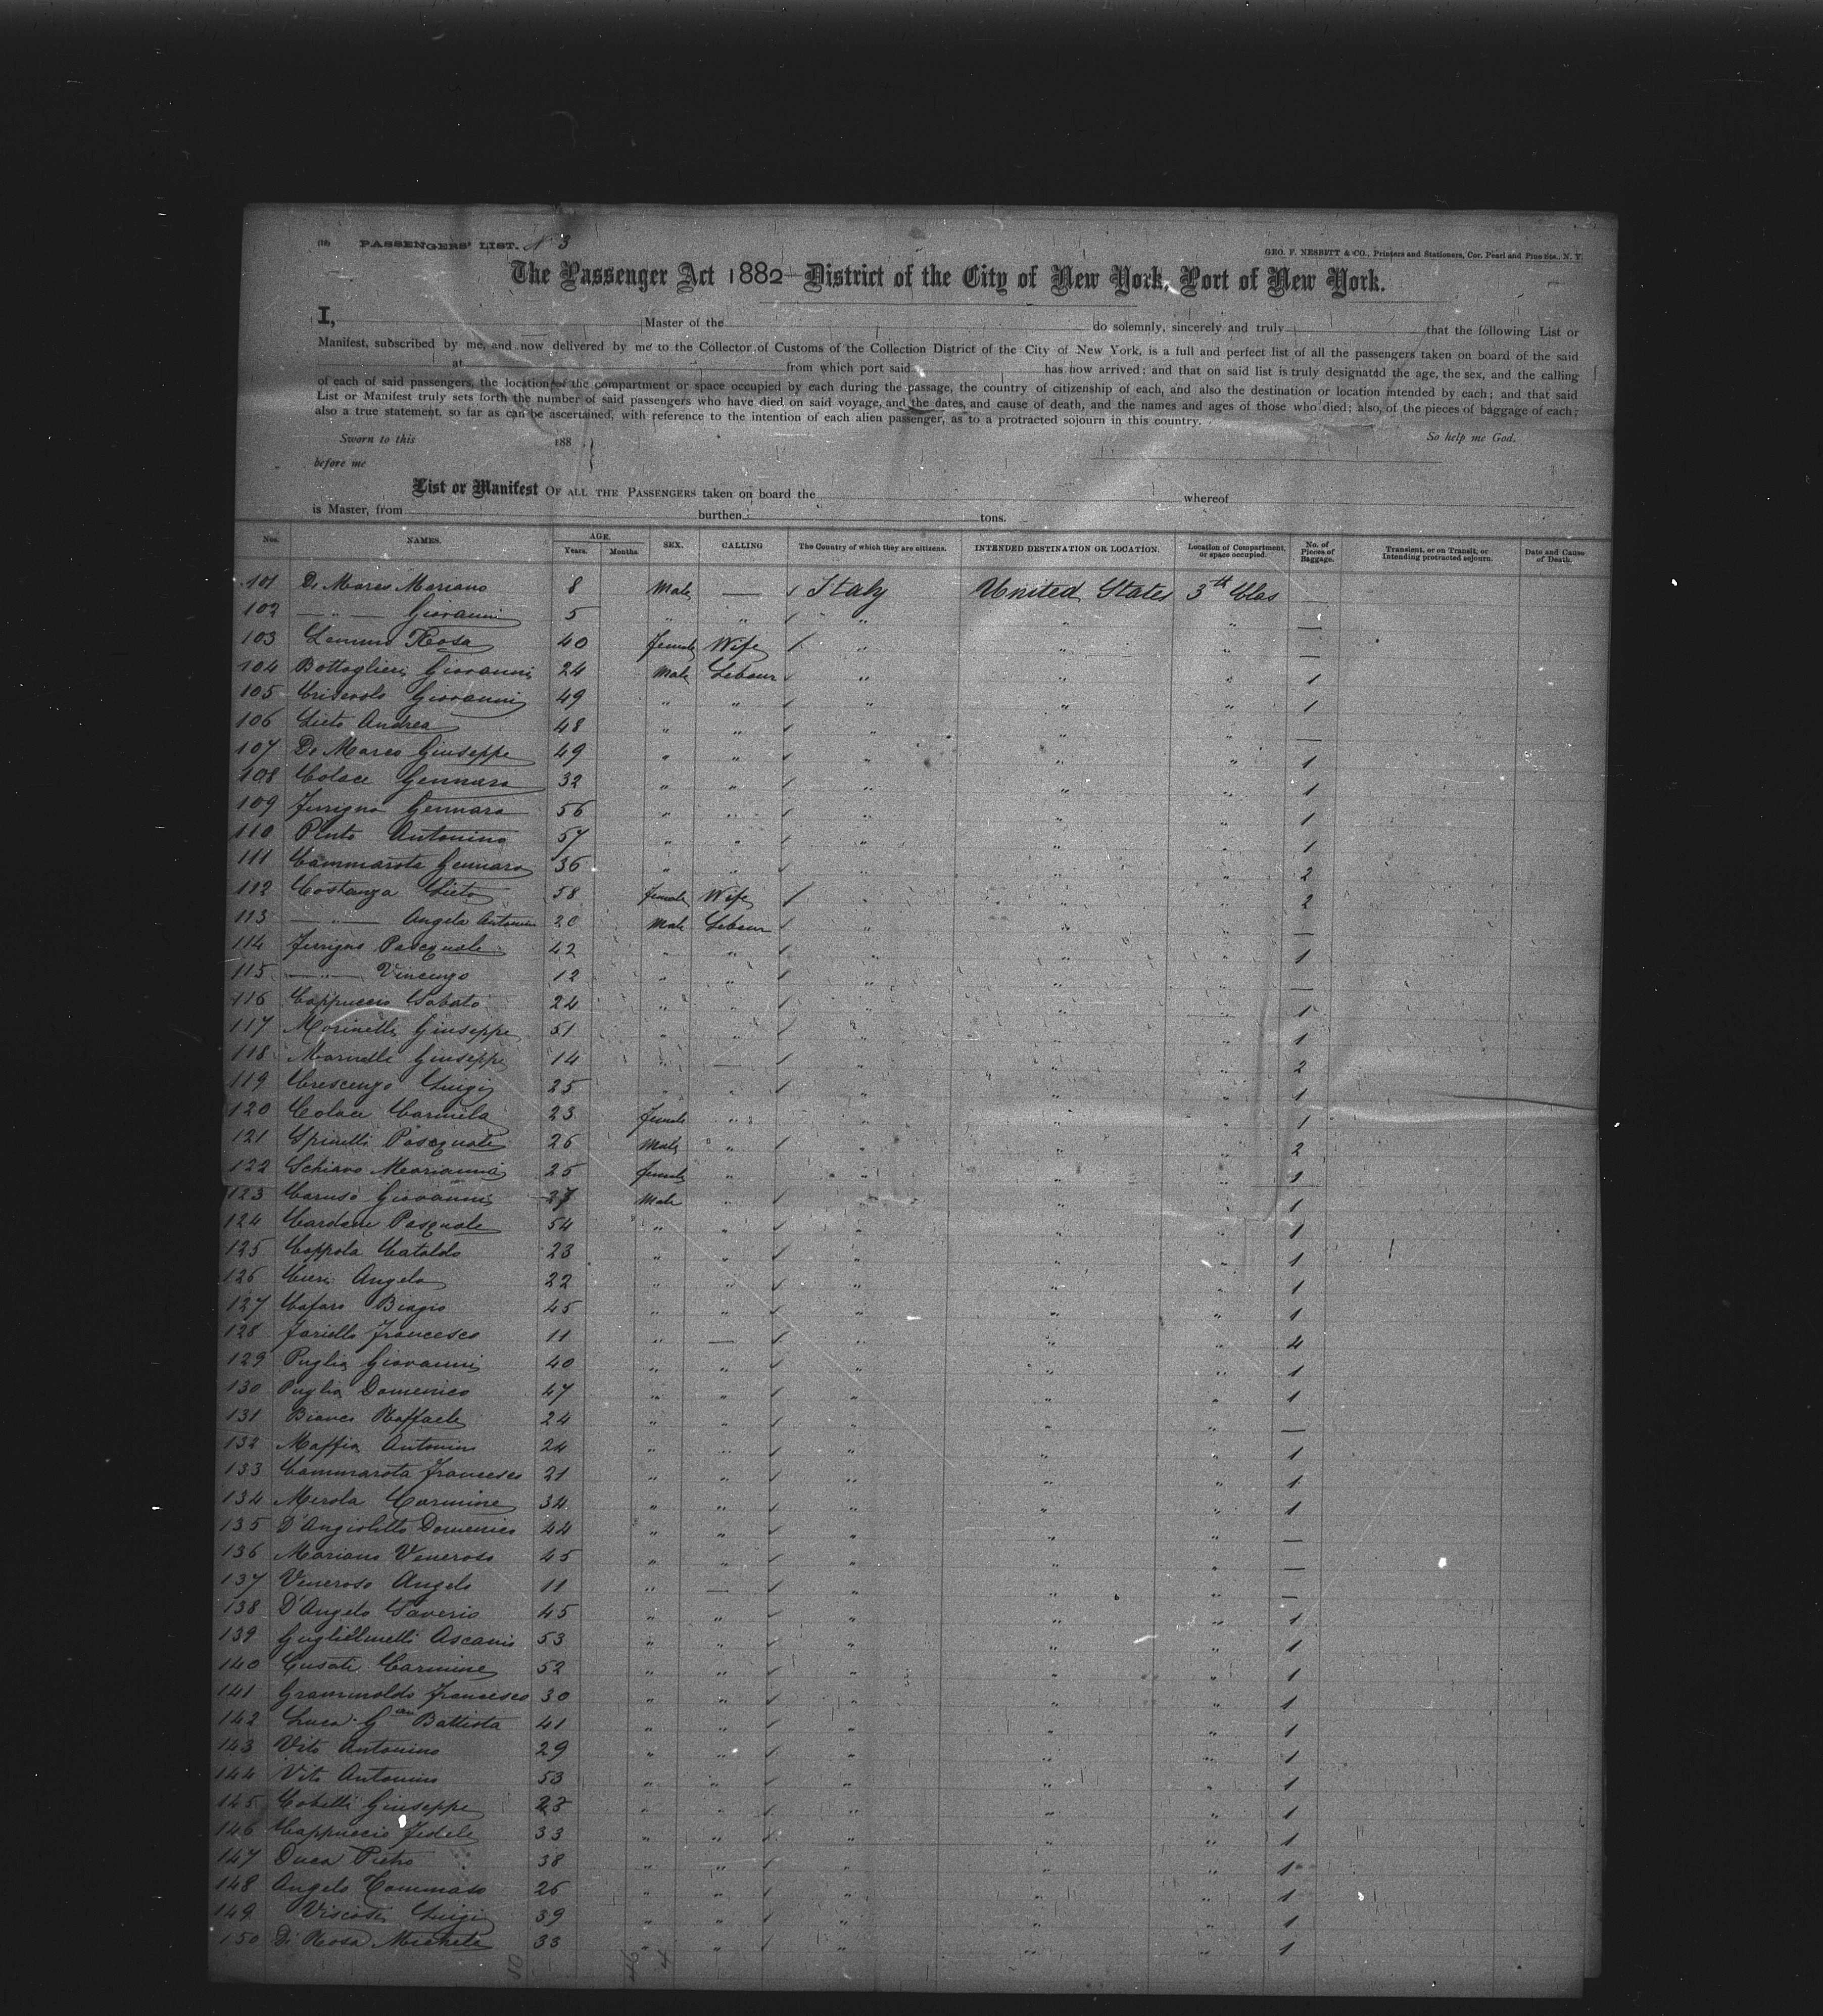 (18) PASSENGERS' LIST. N 3
GEO. F. NESBITT & CO., Printers and Stationers, Cor. Pearl and Pine Sts., N. Y.
The Passenger Act 1882—District of the City of New York, Port of New York.
I, Master of the do solemnly, sincerely and truly that the following List or
Manifest, subscribed by me, and now delivered by me to the Collector of Customs of the Collection District of the City of New York, is a full and perfect list of all the passengers taken on board of the said
at from which port said has now arrived; and that on said list is truly designated the age, the sex, and the calling
of each of said passengers, the location of the compartment or space occupied by each during the passage, the country of citizenship of each, and also the destination or location intended by each; and that said
List or Manifest truly sets forth the number of said passengers who have died on said voyage, and the dates, and cause of death, and the names and ages of those who died; also, of the pieces of baggage of each;
also a true statement, so far as can be ascertained, with reference to the intention of each alien passenger, as to a protracted sojourn in this country.
Sworn to this 188 So help me God.
before me
List or Manifest OF ALL THE PASSENGERS taken on board the whereof
is Master, from burthen tons.
Nos. NAMES. AGE. Years. Months. SEX. CALLING The Country of which they are citizens. INTENDED DESTINATION OR LOCATION. Location of Compartment, or space occupied. No. of Pieces of Baggage. Transient, or on Transit, or Intending protracted sojourn. Date and Cause of Death.
101 De Marco Mariano 8 Male — Italy United States 3th Clas —
102 — " — Giovanni 5 " " " " " —
103 Rosa 40 female Wife " " " —
104 Bottoglieri Giovanni 24 Male Labour " " " 1
105 Giovanni 49 " " " " " 1
106 Lieto Andrea 48 " " " " " —
107 De Marco Giuseppe 49 " " " " " 1
108 Colace Gennaro 32 " " " " " 1
109 Ferrigno Gennaro 56 " " " " " 1
110 Pinto Antonino 57 " " " " " 1
111 Cammarota Gennaro 36 " " " " " 2
112 Costanza Lieto 58 female Wife " " " 2
113 — " — Angelo Antonin 20 Male Labour " " " —
114 Ferrigno Pasquale 42 " " " " " 1
115 — " — Vincenzo 12 " " " " —
116 Cappuccio Sabato 24 " " " " " 1
117 Morinelli Giuseppe 51 " " " " " 1
118 Marinelli Giuseppe 14 " — " " " 2
119 Crescenzo Luigi 25 " " " " " 1
120 Colace Carmela 23 female " " " " 1
121 Spinelli Pasquale 26 Male " " " " 2
122 Schiavo Marianna 25 female " " " " 1
123 Caruso Giovanni 27 Male " " " " 1
124 Cardone Pasquale 54 " " " " " 1
125 Coppola Cataldo 23 " " " " " 1
126 Angelo 22 " " " " " 1
127 Cafaro Biagio 45 " " " " " 1
128 Jariello Francesco 11 " — " " " 4
129 Puglia Giovanni 40 " " " " " 1
130 Puglia Domenico 47 " " " " " 1
131 Bianco Raffaele 24 " " " " " —
132 Maffia Antonino 24 " " " " " 1
133 Cammarota Francesco 21 " " " " " 1
134 Merola Carmine 34 " " " " " 1
135 D'Angiolillo Domenico 44 " " " " " —
136 Mariano Veneroso 45 " " " " " —
137 Veneroso Angelo 11 " — " " " —
138 D'Angelo Saverio 45 " " " " " 1
139 Guglielmelli Ascanio 53 " " " " " 1
140 Cusati Carmine 52 " " " " " 1
141 Grammaldo Francesco 30 " " " " " 1
142 Luca Gian Battista 41 " " " " " 1
143 Vito Antonino 29 " " " " " 1
144 Vito Antonino 53 " " " " " 1
145 Cobelli Giuseppe 23 " " " " " 1
146 Cappuccio Fedele 33 " " " " " 1
147 Duca Pietro 38 " " " " " 1
148 Angelo Tommaso 26 " " " " " 1
149 Viscosi Luigi 39 " " " " " 1
150 Di Rosa Michele 33 " " " " " 1
50 46 4